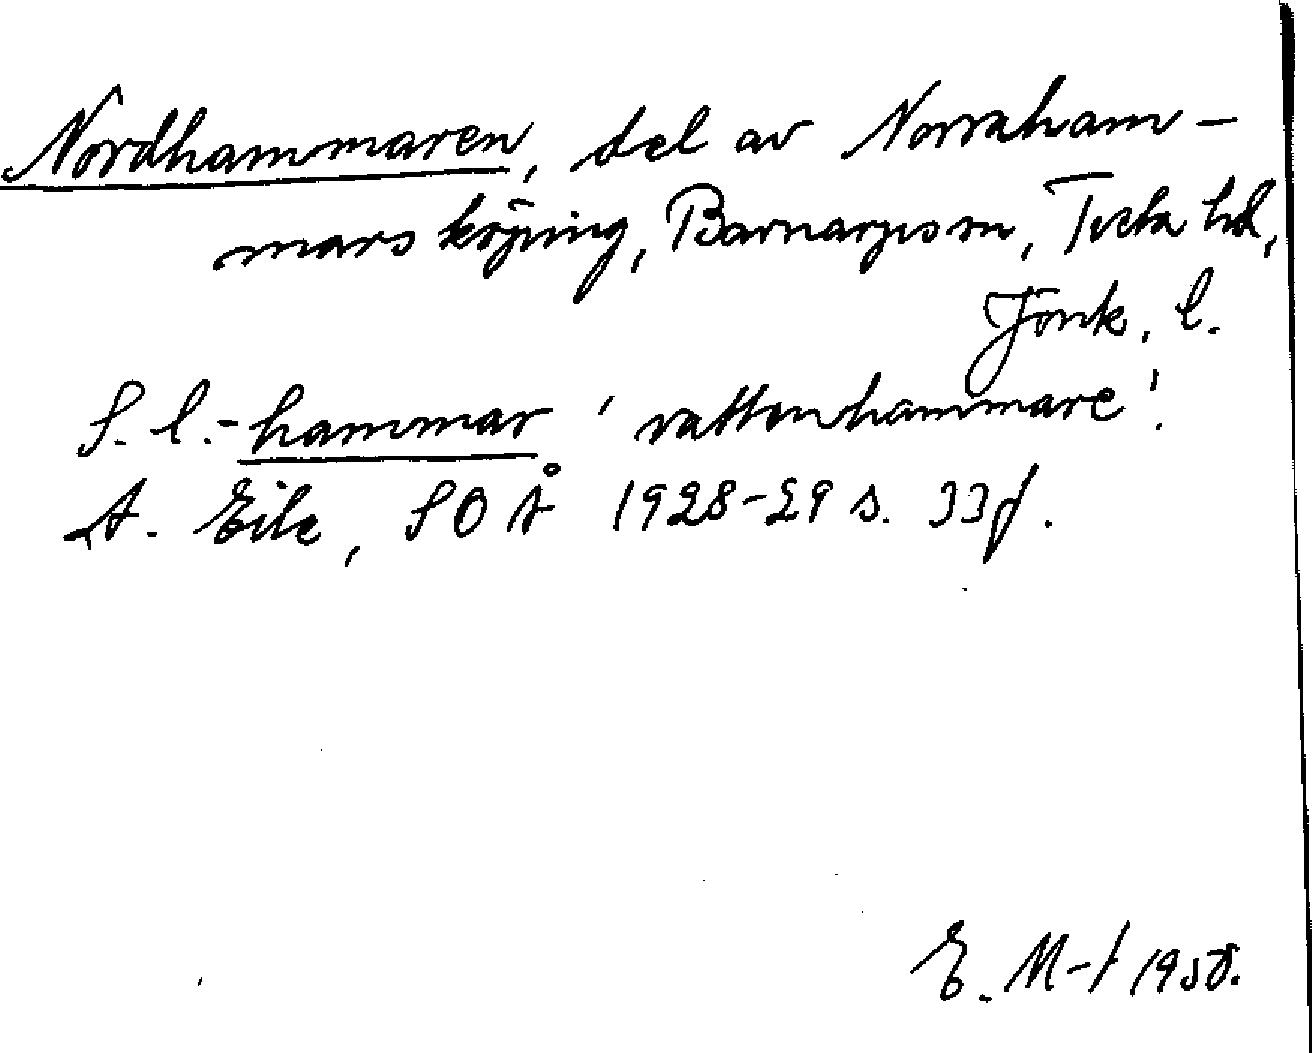 Nordhammaren, del av Norraham-
mars köping, Barnarps sn, Tveta hd,
Jönk. l.
S. l. -hammar 'vattenhammare'.
A. Ejle, SOÅ 1928-29 s. 33f.
E. M-t 1950.